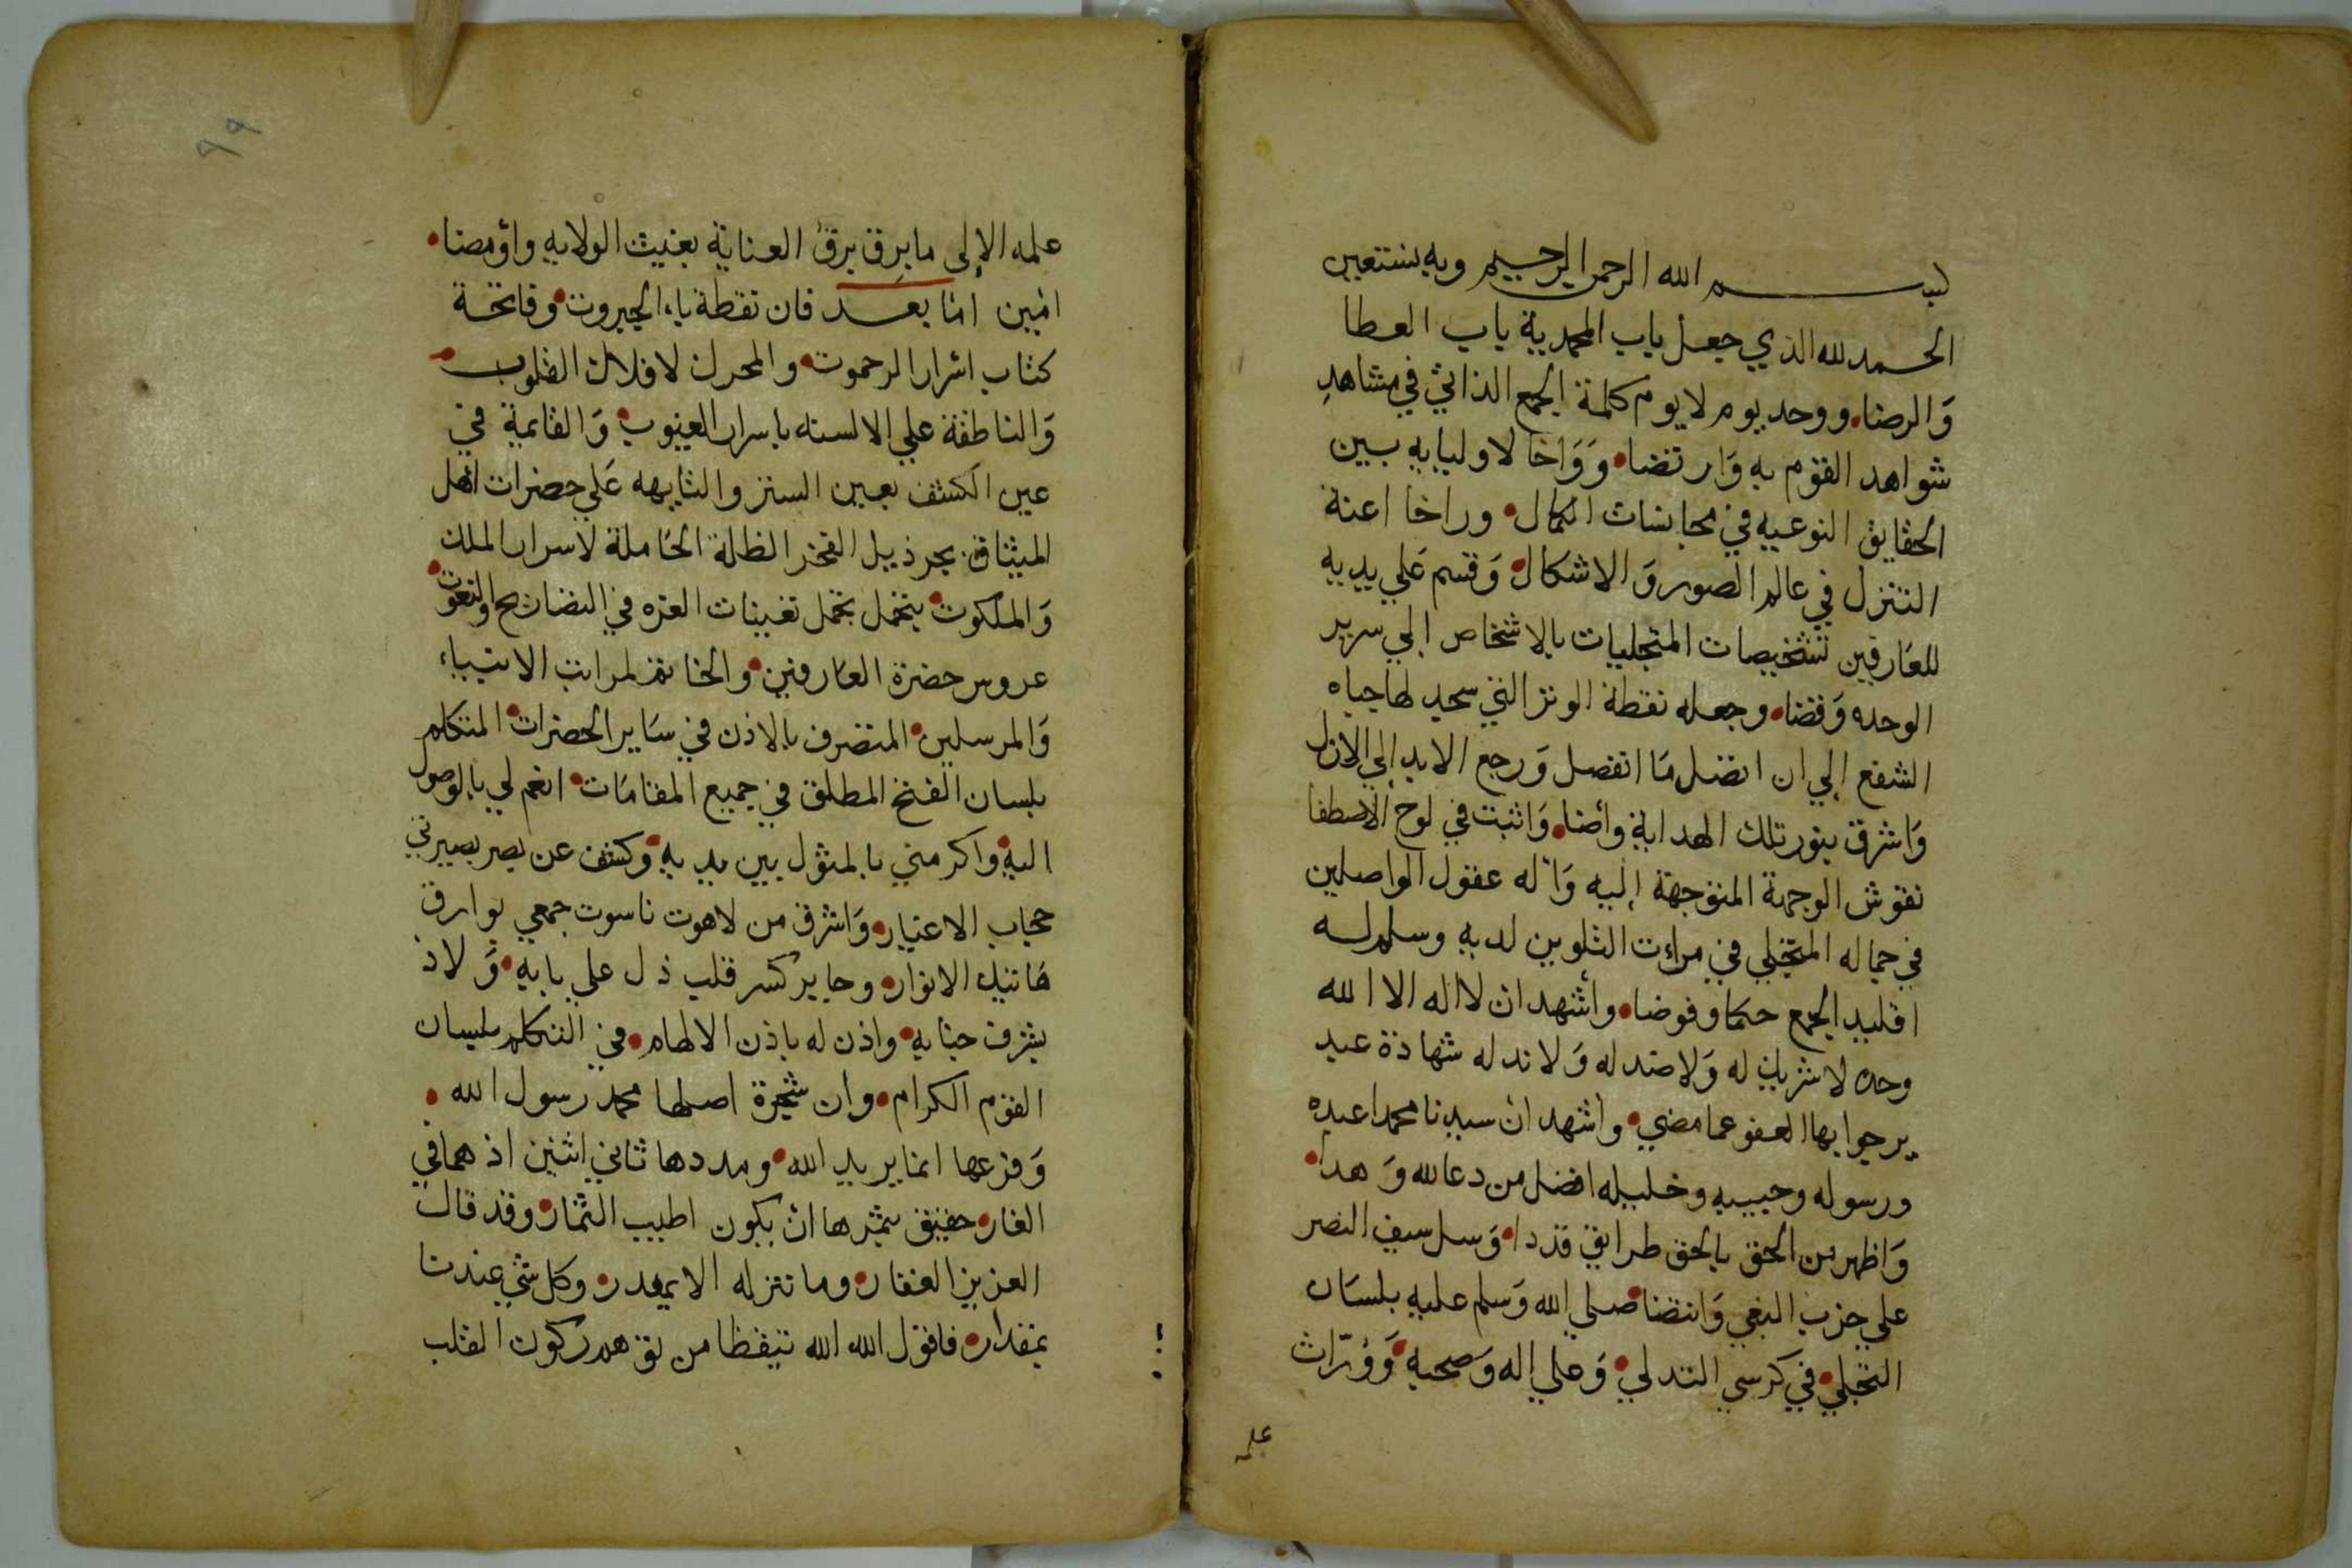 بسم الله الرحمن الرحيم وبه نستعين
الحمد لله الذي جعل باب المحمدية باب العطا
وَالرضا، ووحد يوم لا يوم كلمة الجمع الذاتي في مشاهدِ
شواهد القوم به وَارتضا، وَوَاخا لاوليايه بين
الحقايق النوعيه في مجانسات الكمال، وراخا اعنة
التنزل في عالم الصور وَالاشكال، وَقسم عَلي يديه
للعارفين تشخيصات المتجليات بالاشخاص إلي سرير
الوحده وَقضا، وجعله نقطة الوتر التي سجد لها جباه
الشفع إلي ان اتصل مَا انفصل وَرجع الابد إلي الازل
وَاشرق بنور تلك الهداية وأضا، وَاثبت في لوح الاصطفا
نقوش الوجهة المتوجهة إليه وَاْله عقول الواصلين
في جماله المتجلي في مراءت التلوين لديه وسلم له
اقليد الجمع حكما وفوضا، وأشهد ان لا اله الا الله
وحده لا شريك له وَلا ضد له وَلا ند له شهادة عبد
يرجوا بها العفو عما مضي، واشهد ان سيدنا محمدا عبده
ورسوله وحبيبه وخليله افضل من دعا لله وَهدا،
وَاظهر من الحق بالحق طرايق قددا، وَسل سيف النصر
علي حزب البغي وَانتضا، صلي الله وَسلم عليه بلسَان
التجلي، في كرسي التدلي، وَعلي إله وَصحبه، وَوُرّاث
علمه
٩٩
علمه الإلي ما برق برق العناية بغيث الولايه واؤمضا،
امين امّا بعد فان نقطة باء الجبروت، وفاتحة
كتاب اسْرار الرحموت، والمحرك لافلاك القلوب،
وَالناطقة علي الالسنه باسرار الغيوب، وَالقايمة في
عين الكشف بعين الستر والتايهه عَلي حضرات اهل
الميثاق، بجر ذيل الفخر الظلة الحاملة لاسرار الملك
وَالملكوت، بتخمل تعينات العزه في النضارح والنعوت،
عروس حضرة العَارفين، والخاتم لمراتب الانبياء
وَالمرسلين، المتصرف بالاذن في سَاير الحضرات، المتكلم
بلسان الفتح المطلق في جميع المقامَات، انعم لي بالوصول
اليه، واكرمني بالمثول بين يديه، وكشف عن بصر بصيرتي
حجاب الاغيار، وَاشرق من لاهوت ناسوت جمعي بوارق
هَاتيك الانوار، وجابر كسر قلب ذل علي بابه، وَلاذ
بشرف جنابه، واذن له باذن الالهام، في التكلم بلسان
القوم الكرام، وان شجرة اصلها محمد رسول الله،
وَفرعها انما يريد الله، ومددها ثاني اثنين اذ هما في
الغار، حقيق بثمرها ان يكون اطيب الثمار، وقد قال
العزيز الغفار، وما ننزله الا بقدر، وكل شي عندنا
بمقدار، فاقول الله الله تيقظا من توهم ركون القلب